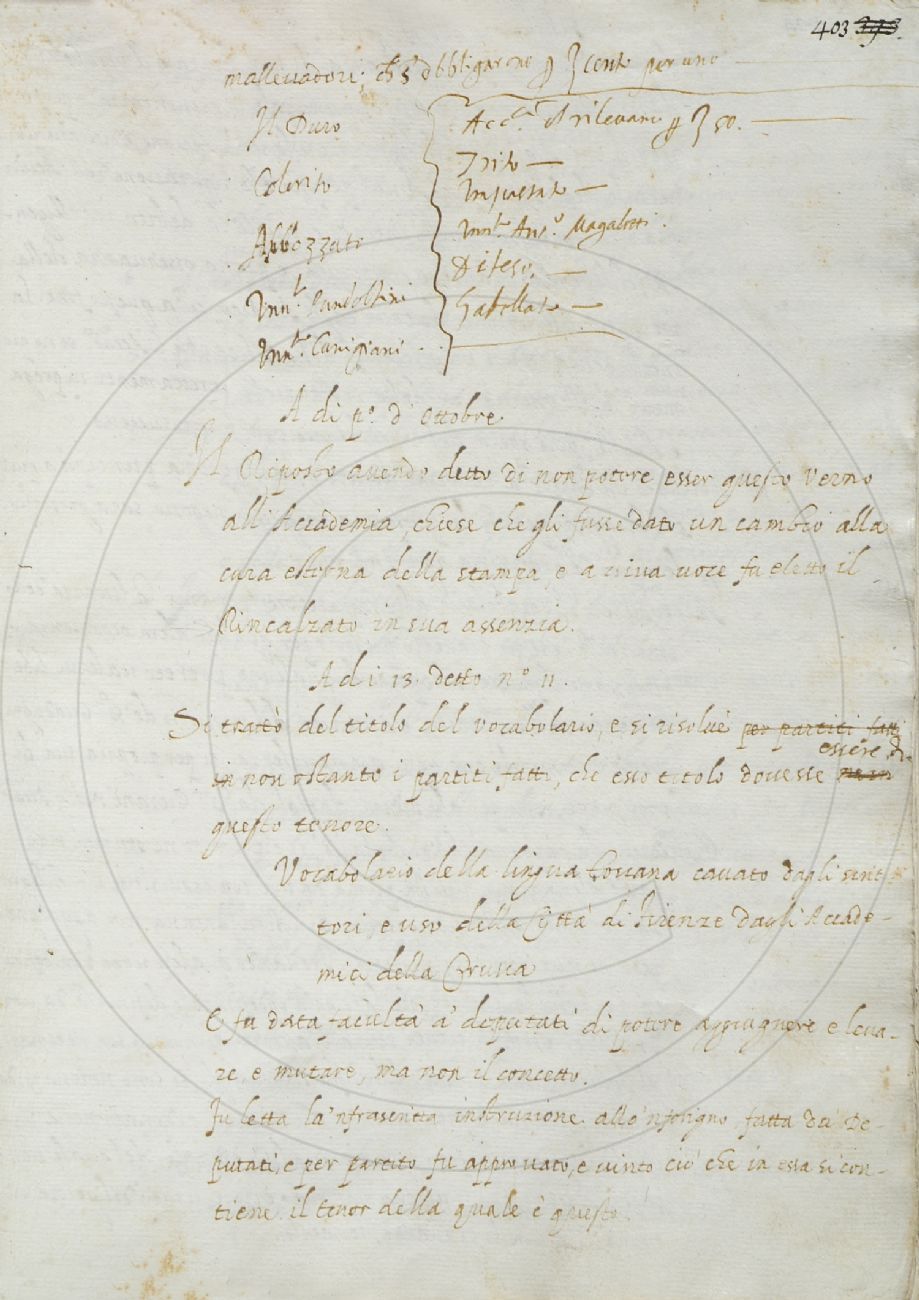 403 393.
mallevadori; ch s' obbligarone p cento per uno
Il Duro
Colorito
Abbozzato
Inn.to Pandolfini
Inn.to Canigiani
rilevare p 50.
Trito
Inpastato
Inn.to Ant.o Magalotti.
Difeso.
Gabellato
A di p.o d' Ottobre.
Il Riposto avendo detto di non potere esser questo verno
all' Accademia, chiese che gli fusse dato un cambio alla
cura esterna della stampa, e a viva voce fu eletto il
Rincalzato in sua assenzia.
A di 13. detto n.o 11.
Si trattò del titolo del vocabolario, e si risolvè per partiti fatti
essere di
in non ostante i partiti fatti, che esso titolo dovesse
questo tenore.
Vocabolario della lingua toscana cavato dagli scrit-
tori, e uso della Città di Firenze dagli Accade-
mici della Crusca
E fu data facultà a' deputati di potere aggiugnere e leva-
re, e mutare, ma non il concetto.
Fu letta la 'nfrascritta instruzione allo 'nferigno, fatta da' De-
putati, e per partito fu approvato, e vinto ciò che in essa si con-
tiene il tenor della quale è questo